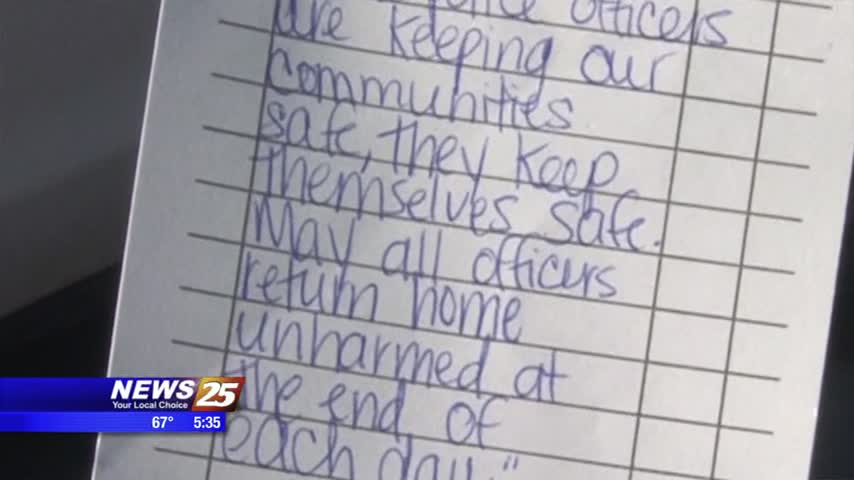 officers
are keeping our
communities
safe, they keep
themselves safe.
May all officers
return home
unharmed at
the end of
each day."
NEWS 25
Your Local Choice
67° 5:35